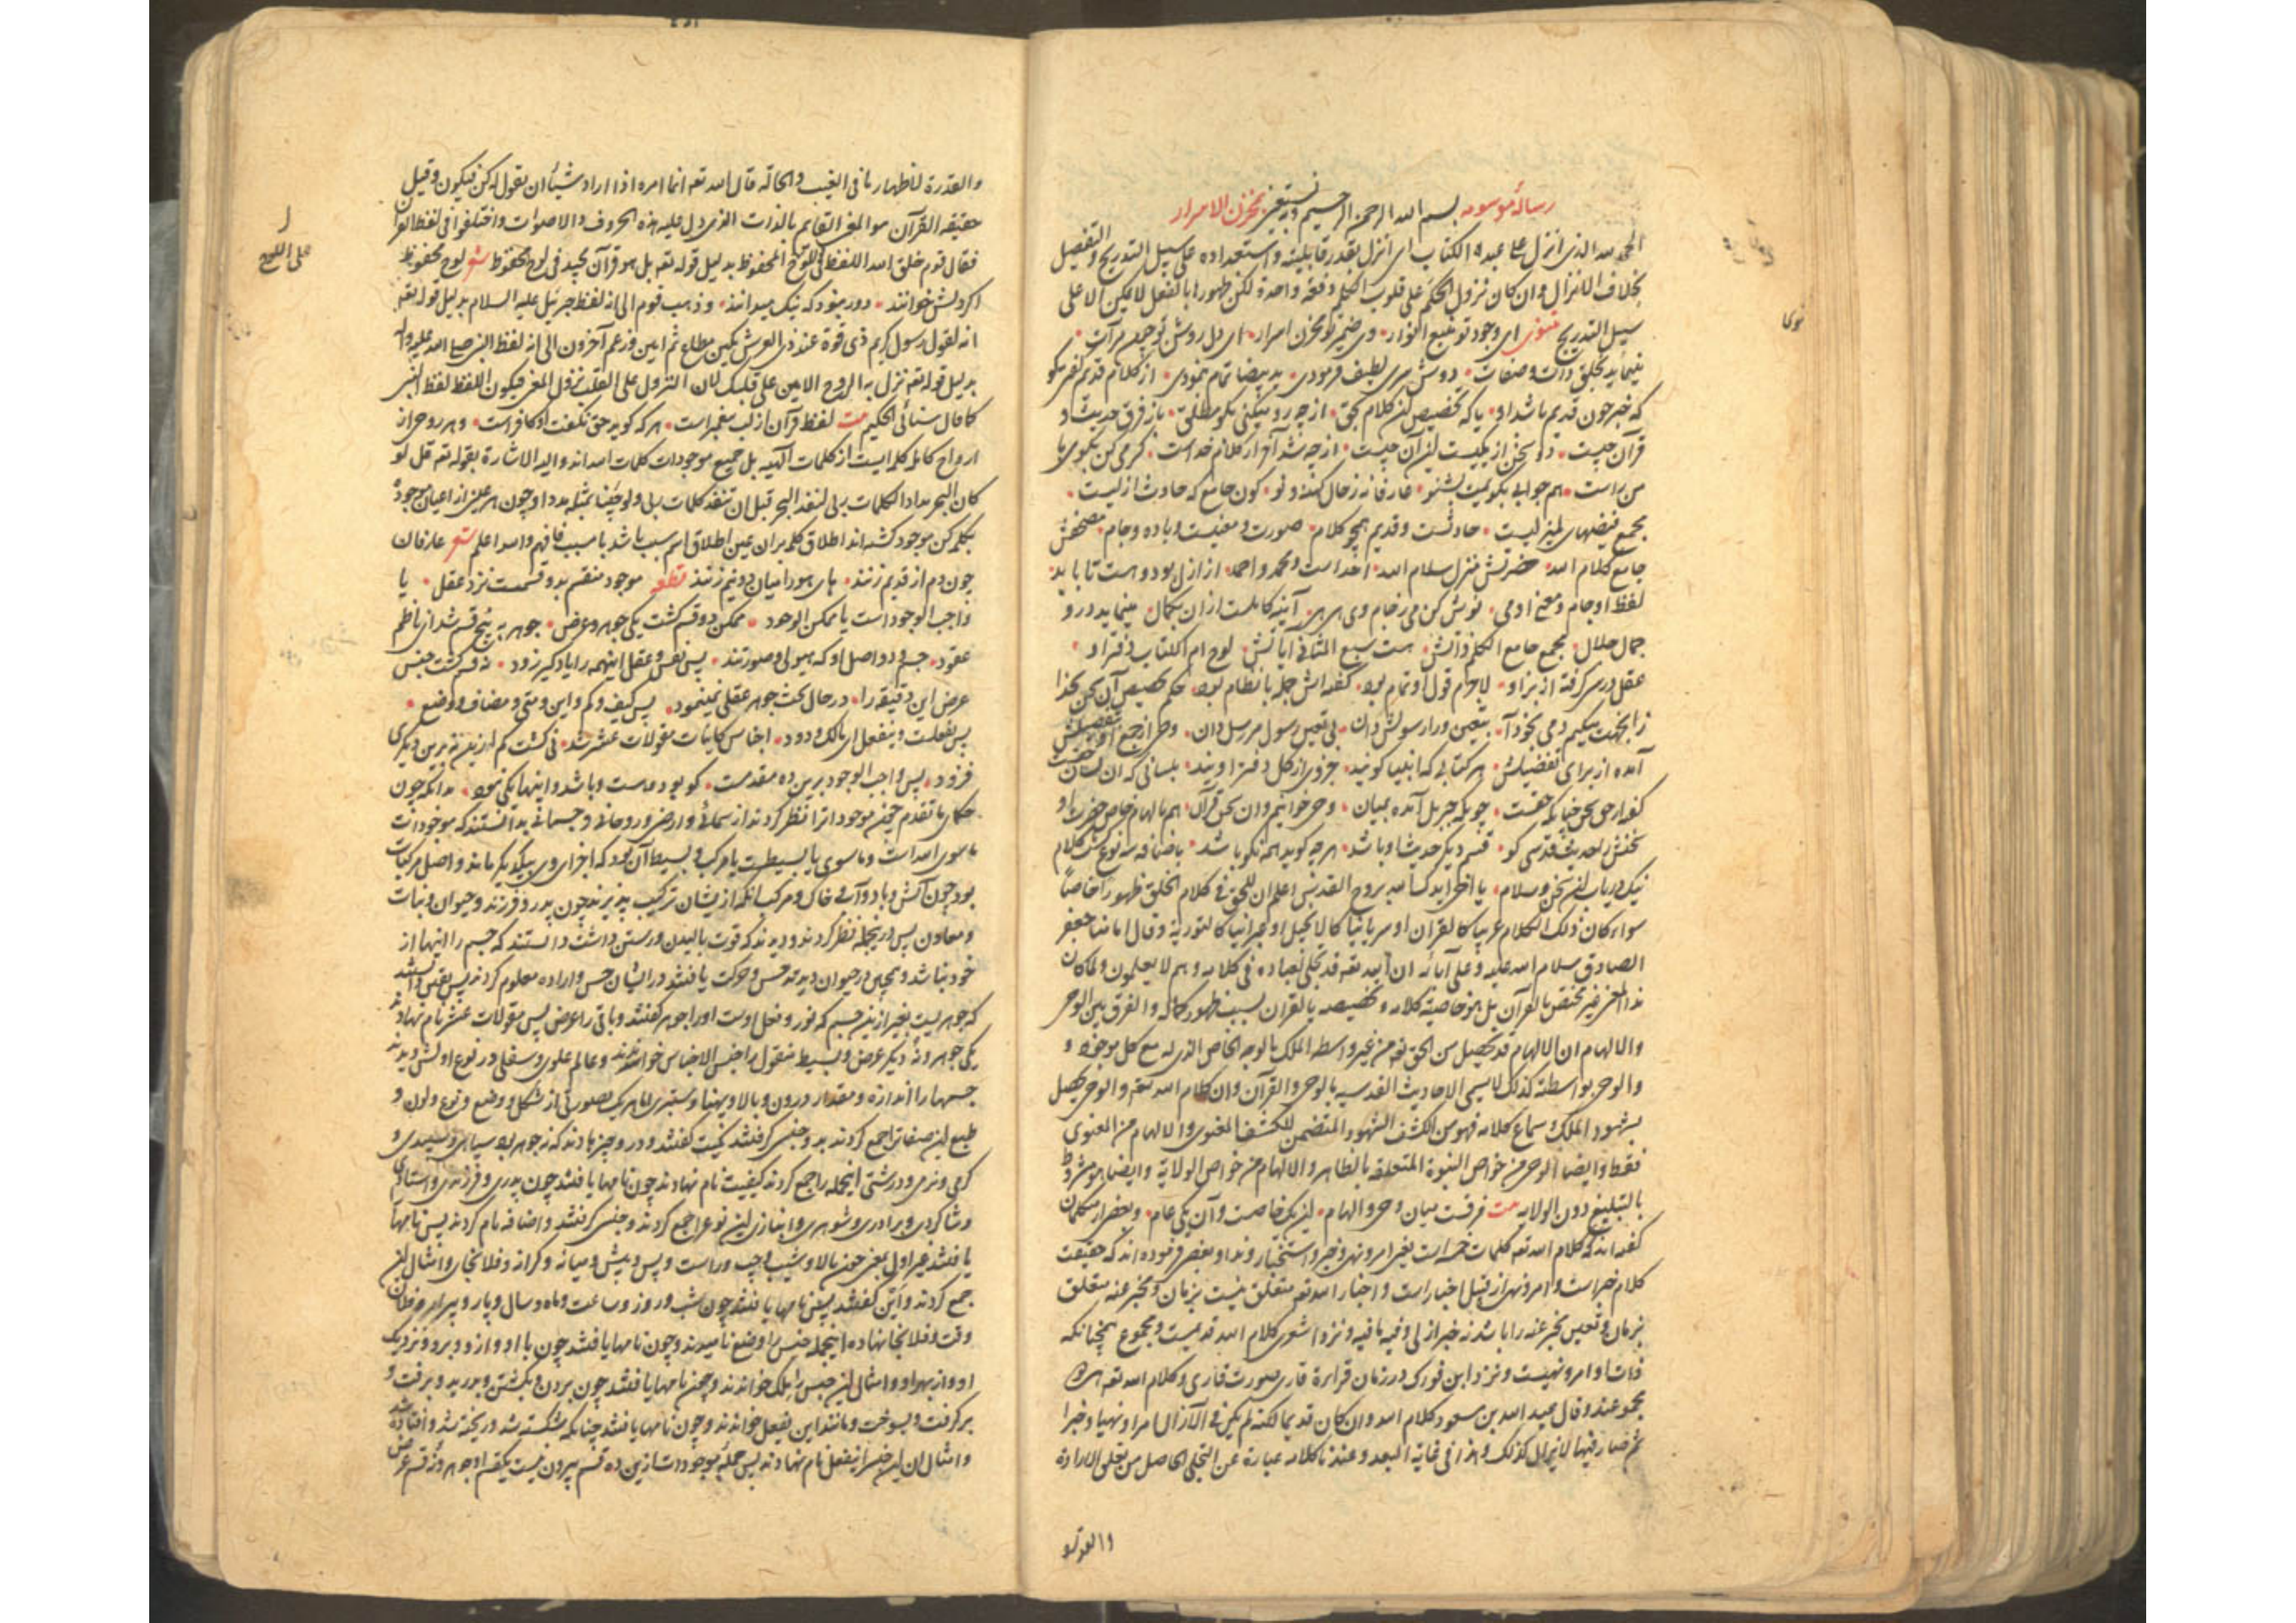 رسالهٔ موسومه بسم الله الرحمن الرحیم وبه نستعین بمخزن الاسرار
الحمد لله الذی انزل علی عبده الکتاب ای انزل بقدر قابلیته واستعداده علی سبیل التدریج والتفصیل
بخلاف الانزال وان کان نزول الحکم علی قلوب الکمل دفعة واحدة لکن ظهورها بالفعل لا یکون الا علی
سبیل التدریج مثنوی ای وجود تو منبع انوار وی ضمیر تو مخزن اسرار ای دل روش تو جام مرآت
مینماید تجلی ذات وصفات دوش سری لطیف فرمودی ید بیضا تمام نمودی از کلام قدیم
که خبر چون قدیم باشد او یا که تخصیص این کلام بحق از چه رو میکنی بگو مطلق باز فرق حدیث و
قرآن چیست دو سخن از یکیست این آن چیست از چه شد آنچه از کلام خداست کرمی کن بگوی با
من راست هم جوابی بگویمت بشنو عارفانه ز حال کهنه و نو کون جامع که حادث ازلیست
مجمع فیضهای لم یزلیست حادثست وقدیم همچو کلام صورت ومعنیست وباده وجام مصحفش
جامع کلام الله حضرتش منزل سلام الله احد است ومحمد واحمد از ازل بود وهست تا بابد
لفظ او جام ومعنی او می نوش کن می ز جام وی هی هی آینه کاملست از آن بکمال مینماید درو
جمال جلال مجمع جامع الکلم ذاتش هست سبع المثانی آیاتش لوح ام الکتاب دفتر او
عقل درس گرفته از بر او لاجرم قول او تمام بود گفته‌اش جمله با نظام بود حکم تخصیص آن سخن بخدا
زانجهت میکنیم دمی بخود آ بتعین ورا رسولش دان بی تعین رسول مرسل دان وحی از جمع او
آمده از برای تفضیلش هر کتابی که انبیا گویند جزوی از کل دفتر اویند بلسانی که آن لسان حقست
گفته از حق سخن چنانکه حقست چونکه جبریل آمده بمیان وحی خوانیم و آن سخن قرآن هم بالهام خاص حضرت او
سخنش را حدیث قدسی گو قسم دیگر حدیث او باشد هر چه گوید همه نکو باشد
نیک دریاب این سخن وسلام یا اخی ایدک الله بروح القدس اعلم ان للحق فی کلام الخلق ظهورا خاصا
سواء کان ذلک الکلام عربیا کالقرآن او سریانیا کالانجیل او عبرانیا کالتوریة وقال امامنا جعفر
الصادق سلام الله علیه وعلی آبائه ان الله تعه قد تجلی لعباده فی کلامه وهم لا یعلمون ولما کان
هذا المعنی غیر مختص بالقرآن بل هو خاصیة کلامه وتخصیصه بالقرآن لسبب ظهور کماله والفرق بین الوحی
والالهام ان الالهام قد یحصل من الحق تعه من غیر واسطة الملک بالوجه الخاص الذی له مع کل موجود و
والوحی بواسطته کذلک لا یسمی الاحادیث القدسیه بالوحی والقرآن وان کلام الله تعه والوحی یحصل
بشهود الملک وسماع کلامه فهو من الکشف الشهودی المتضمن للکشف المعنوی والالهام من المعنوی
فقط وایضا الوحی من خواص النبوة المتعلقة بالظاهر والالهام من خواص الولایة وایضا هو مشروط
بالتبلیغ دون الولایه بیت فرقست میان وحی والهام این یک خاصست وآن یکی عام وبعضی از متکلمان
گفته‌اند که کلام الله تعه کلمات خمسه است یعنی امر ونهی وخبر واستخبار وندا وبعضی فرموده‌اند که حقیقت
کلام خبر است وامر ونهی از قبیل اخبار است واخبار الله تعه متعلق نیست بزمان ومخبر عنه متعلق
بزمان وتعین مخبر عنه را باشد نه خبر ازلی وفیه ما فیه ونزد اشعری کلام الله قدیمست ومجموع همچنانکه
ذات او امر ونهیست ونزد ابن فورک در زمان قراءة قاری صورت قاری وکلام الله تعه هر دو
مجموعند وقال عبید الله بن سعید کلام الله وان کان قدیما لکنه لم یکن فی الازال امرا ونهیا وخبرا
ثم صار فیما لا یزال کذلک وهذا فی غایة البعد وعندنا کلامه عبارة عن التجلی الحاصل من تعلق الارادة
والقدره
نوی
والقدرة لاظهار ما فی الغیب وایجاده قال الله تعه انما امره اذا اراد شیئا ان یقول له کن فیکون وقیل
حقیقة القرآن هو المعنی القایم بالذات الذی دل علیه هذه الحروف والاصوات واختلفوا فی لفظ القرآن
فقال قوم خلق الله اللفظ فی اللوح المحفوظ بدلیل قوله تعه بل هو قرآن مجید فی لوح محفوظ شعر لوح محفوظ
اگر دلش خوانند دور نبود که نیک میدانند وذهب قوم الی انه لفظ جبرئیل علیه السلام بدلیل قوله تعه
انه لقول رسول کریم ذی قوة عند ذی العرش مکین مطاع ثم امین وزعم آخرون الی انه لفظ النبی صلی الله علیه وآله
بدلیل قوله تعه نزل به الروح الامین علی قلبک لان النزول علی القلب نزول المعنی فیکون اللفظ لفظ النبی
کما قال سنائی الحکیم بیت لفظ قرآن از لب پیغمبر است هر که گوید حق نگفت او کافر است وهر روحی از
ارواح کامله کلمه ایست از کلمات الهیه بل جمیع موجودات کلمات الله‌اند والیه الاشارة بقوله تعه قل لو
کان البحر مدادا لکلمات ربی لنفد البحر قبل ان تنفد کلمات ربی ولو جئنا بمثله مددا وچون هر عینی از اعیان موجوده
بکلمه کن موجود گشته‌اند اطلاق کلمه بران عین اطلاق اسم سبب باشد بر مسبب فافهم والله اعلم شعر عارفان
چون دم از قدیم زنند های هو را میان دو نیم زنند قطعه موجود منقسم بدو قسمست نزد عقل یا
واجب الوجود است یا ممکن الوجود ممکن دو قسم گشت یکی جوهر وعرض جوهر به پنج قسم شد ای ناظم
عقود جسم ودو اصل او که هیولی وصورتند پس نفس وعقل اینهمه را یاد گیر زود نه قسم گشت جنس
عرض این دقیقه را در حال بحث جوهر عقلی نمینمود پس کیف وکم واین ومتی ومضاف ووضع
پس یفعلست وینفعل ای مالک ودود اجناس کاینات مقولات عشر شد نی گشت کم ازین نه برین دیگری
فزود پس واجب الوجود برین ده مقدمست کو بود وهست وباشد واینها یکی نبود بدانکه چون
حکمای ما تقدم جنس موجودات را نظر کردند از سمائی وارضی وروحانی وجسمانی بدانستند که موجودات
ماسوی الله است وماسوی یا بسیطست یا مرکب وبسیط آن بود که اجزای وی بیکدیگر ماند واصل مرکبات
بود چون آتش وباد وآب وخاک ومرکب آنکه ازیشان ترکیب پذیرند چون پدر وفرزند وحیوان ونبات
ومعادن پس درینجمله نظر کردند ودیدند که قوت بالیدن ورستن داشت دانستند که جسم را اینها از
خود نباشد وهمچنین در حیوان دیدند حس وحرکت یافتند در انسان حس واراده معلوم کردند پس یقین شد
که جوهریست بغیر ازین جسم که نور وفعل اوست او را جوهر گفتند وباقی را عرض پس مقولات عشر نام نهادند
یکی جوهر ونه دیگر عرض وبسیط مقول را جنس الاجناس خواندند وعالم علوی وسفلی در نوع اولش دیدند
جسمها را اندازه ومقدار درون وبالا وپهنا وستبری اما هر یک بصورتی از شکل ووضع ونوع ولون و
طبع این صفاترا جمع کردند بدو جنس گرفتند کمیت گفتند ودر وچیزها دیدند که نه جوهر بود سیاهی وسپیدی و
گرمی ونرمی ودرشتی اینجمله را جمع کردند کیفیت نام نهادند چون نامها یافتند چون پدری وفرزندی واستادی
وشاگردی وبرادری وشوهری وانبازی این نوع را جمع کردند وجنس گرفتند واضافه نام کردند پس نامها
یافتند غیر اول یعنی چون بالا وشیب وچپ وراست وپس وپیش ومیانه وکران وفلانجای وامثال این
جمع کردند واین گفتند پس نامها یافتند چون شب وروز وساعت وماه وسال وپار وپیرار وفلان
وقت وفلانجا نهاده اینجمله جنس را وضع نامیدند وچون نامها یافتند چون با او واز او وبرو ونزدیک
او واز بهر او وامثال این جنس را ملک خواندند وچون نامها یافتند چون بردن وبکشتن وبدرید وبرفت و
برگرفت وبسوخت ومانند این یفعل خواندند وچون نامها یافتند چنانکه شکسته شد وریخته شد وافتاده شد
وامثال آن این جنس را ینفعل نام نهادند پس جمله موجودات ازین ده قسم بیرون نیست یکقسم او جوهر ونه قسم عرض
علی اللوح